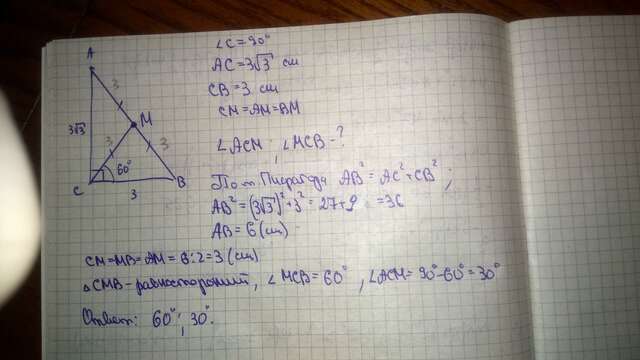 A
∠C = 90°
AC = 3√3 см
CB = 3 см
CM = AM = BM
3
M
3√3
3
3
60°
C
3
B
∠ACM ; ∠MCB - ?
По т. Пифагора AB² = AC² + CB² ;
AB² = (3√3)² + 3² = 27 + 9 = 36
AB = 6 (см)
CM = MB = AM = 6 : 2 = 3 (см)
△ CMB - равносторонний, ∠ MCB = 60° , ∠ACM = 90° - 60° = 30°
Ответ: 60° ; 30°.